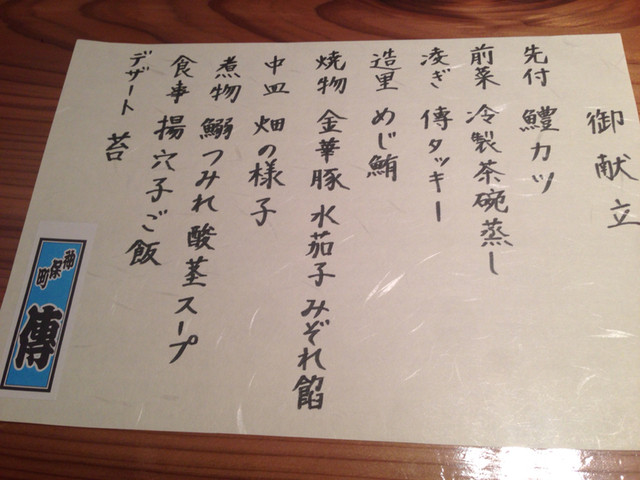 御献立
先付 鱧カツ
前菜 冷製茶碗蒸し
凌ぎ 傳タッキー
造里 めじ鮪
焼物 金華豚 水茄子みぞれ餡
中皿 畑の様子
煮物 鰯つみれ酸茎スープ
食事 揚穴子ご飯
デザート 苔
神保町
傳